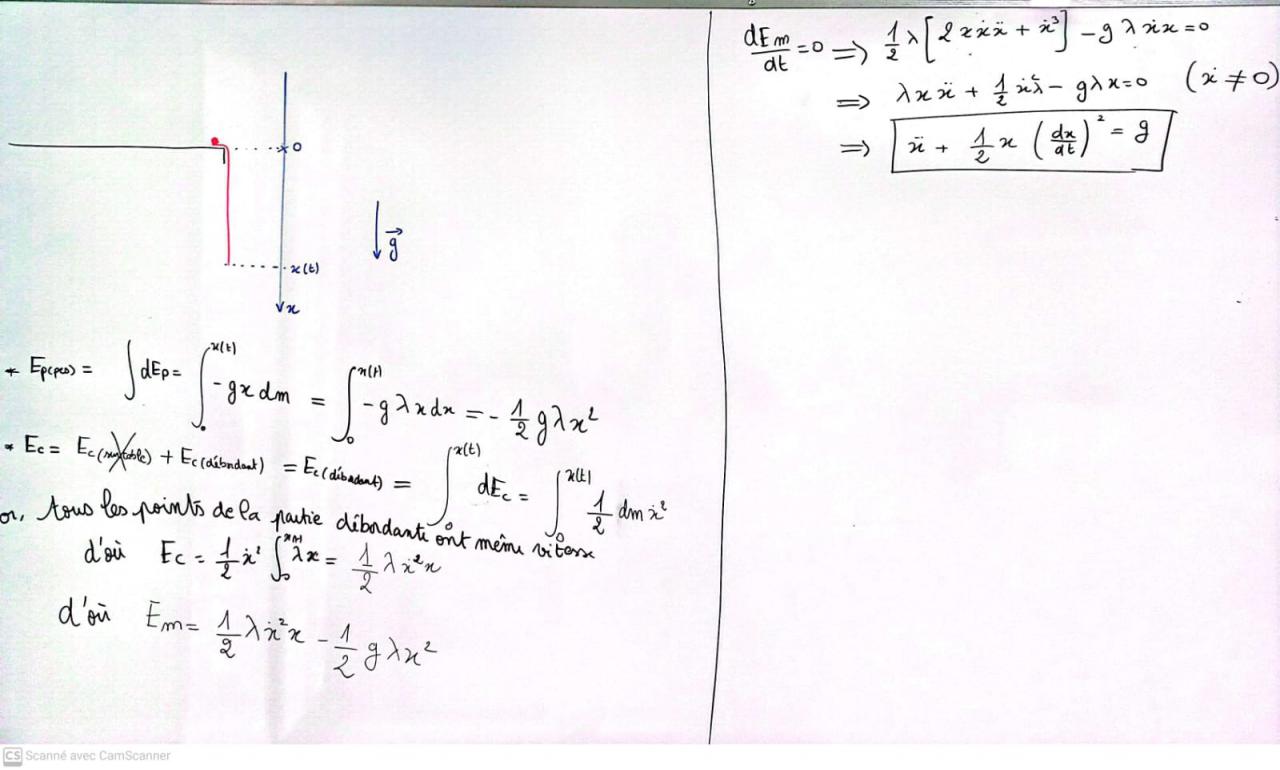 O
x(t)
x
g⃗
* Ep(pes) = ∫dEp = ∫₀^x(t) -gx dm = ∫₀^x(t) -gλx dx = -1/2 gλx²
* Ec = Ec(sur table) + Ec(débordant) = Ec(débordant) = ∫₀^x(t) dEc = ∫₀^x(t) 1/2 dm ẋ²
or, tous les points de la partie débordante ont même vitesse
d'où Ec = 1/2 ẋ² ∫₀^x(t) λx = 1/2 λẋ²x
d'où Em = 1/2 λẋ²x - 1/2 gλx²
dEm/dt = 0 ⟹ 1/2 λ[2xẋẍ + ẋ³] - gλẋx = 0
⟹ λxẍ + 1/2 ẋ²λ - gλx = 0 (ẋ ≠ 0)
⟹ ẍ + 1/2 x (dx/dt)² = g
CS Scanné avec CamScanner